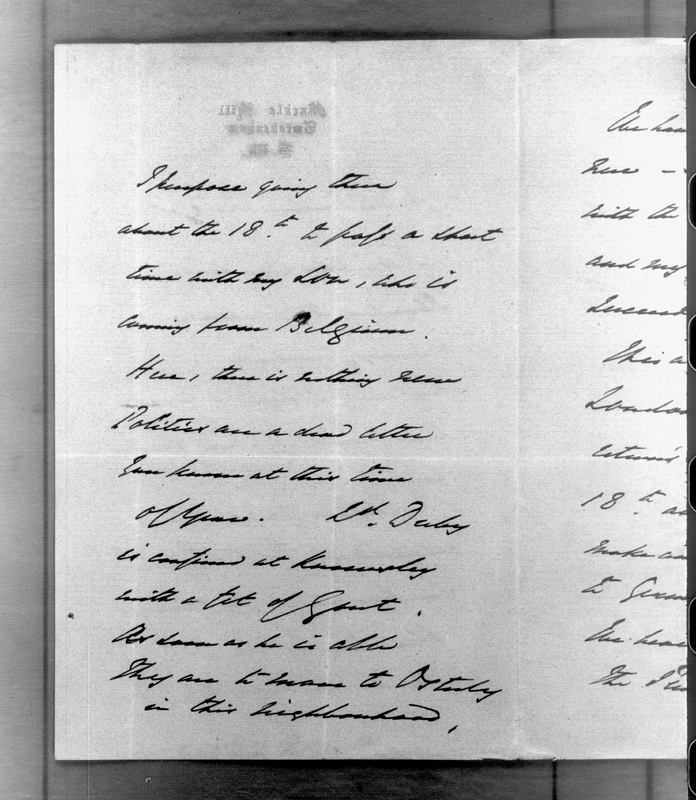 I propose going there
about the 18th. to pass a short
time with my Son, who is
coming from Belgium.
Here, there is nothing new
Politics are a dead letter
you know at this time
of year. Ld. Derby
is confined at Knowsley
with a fit of Gout.
As soon as he is able
They are to move to Osterley
in this neighbourhood,
We have
here —
with the
and my
This is
London
18th.
make
to
We hear
the